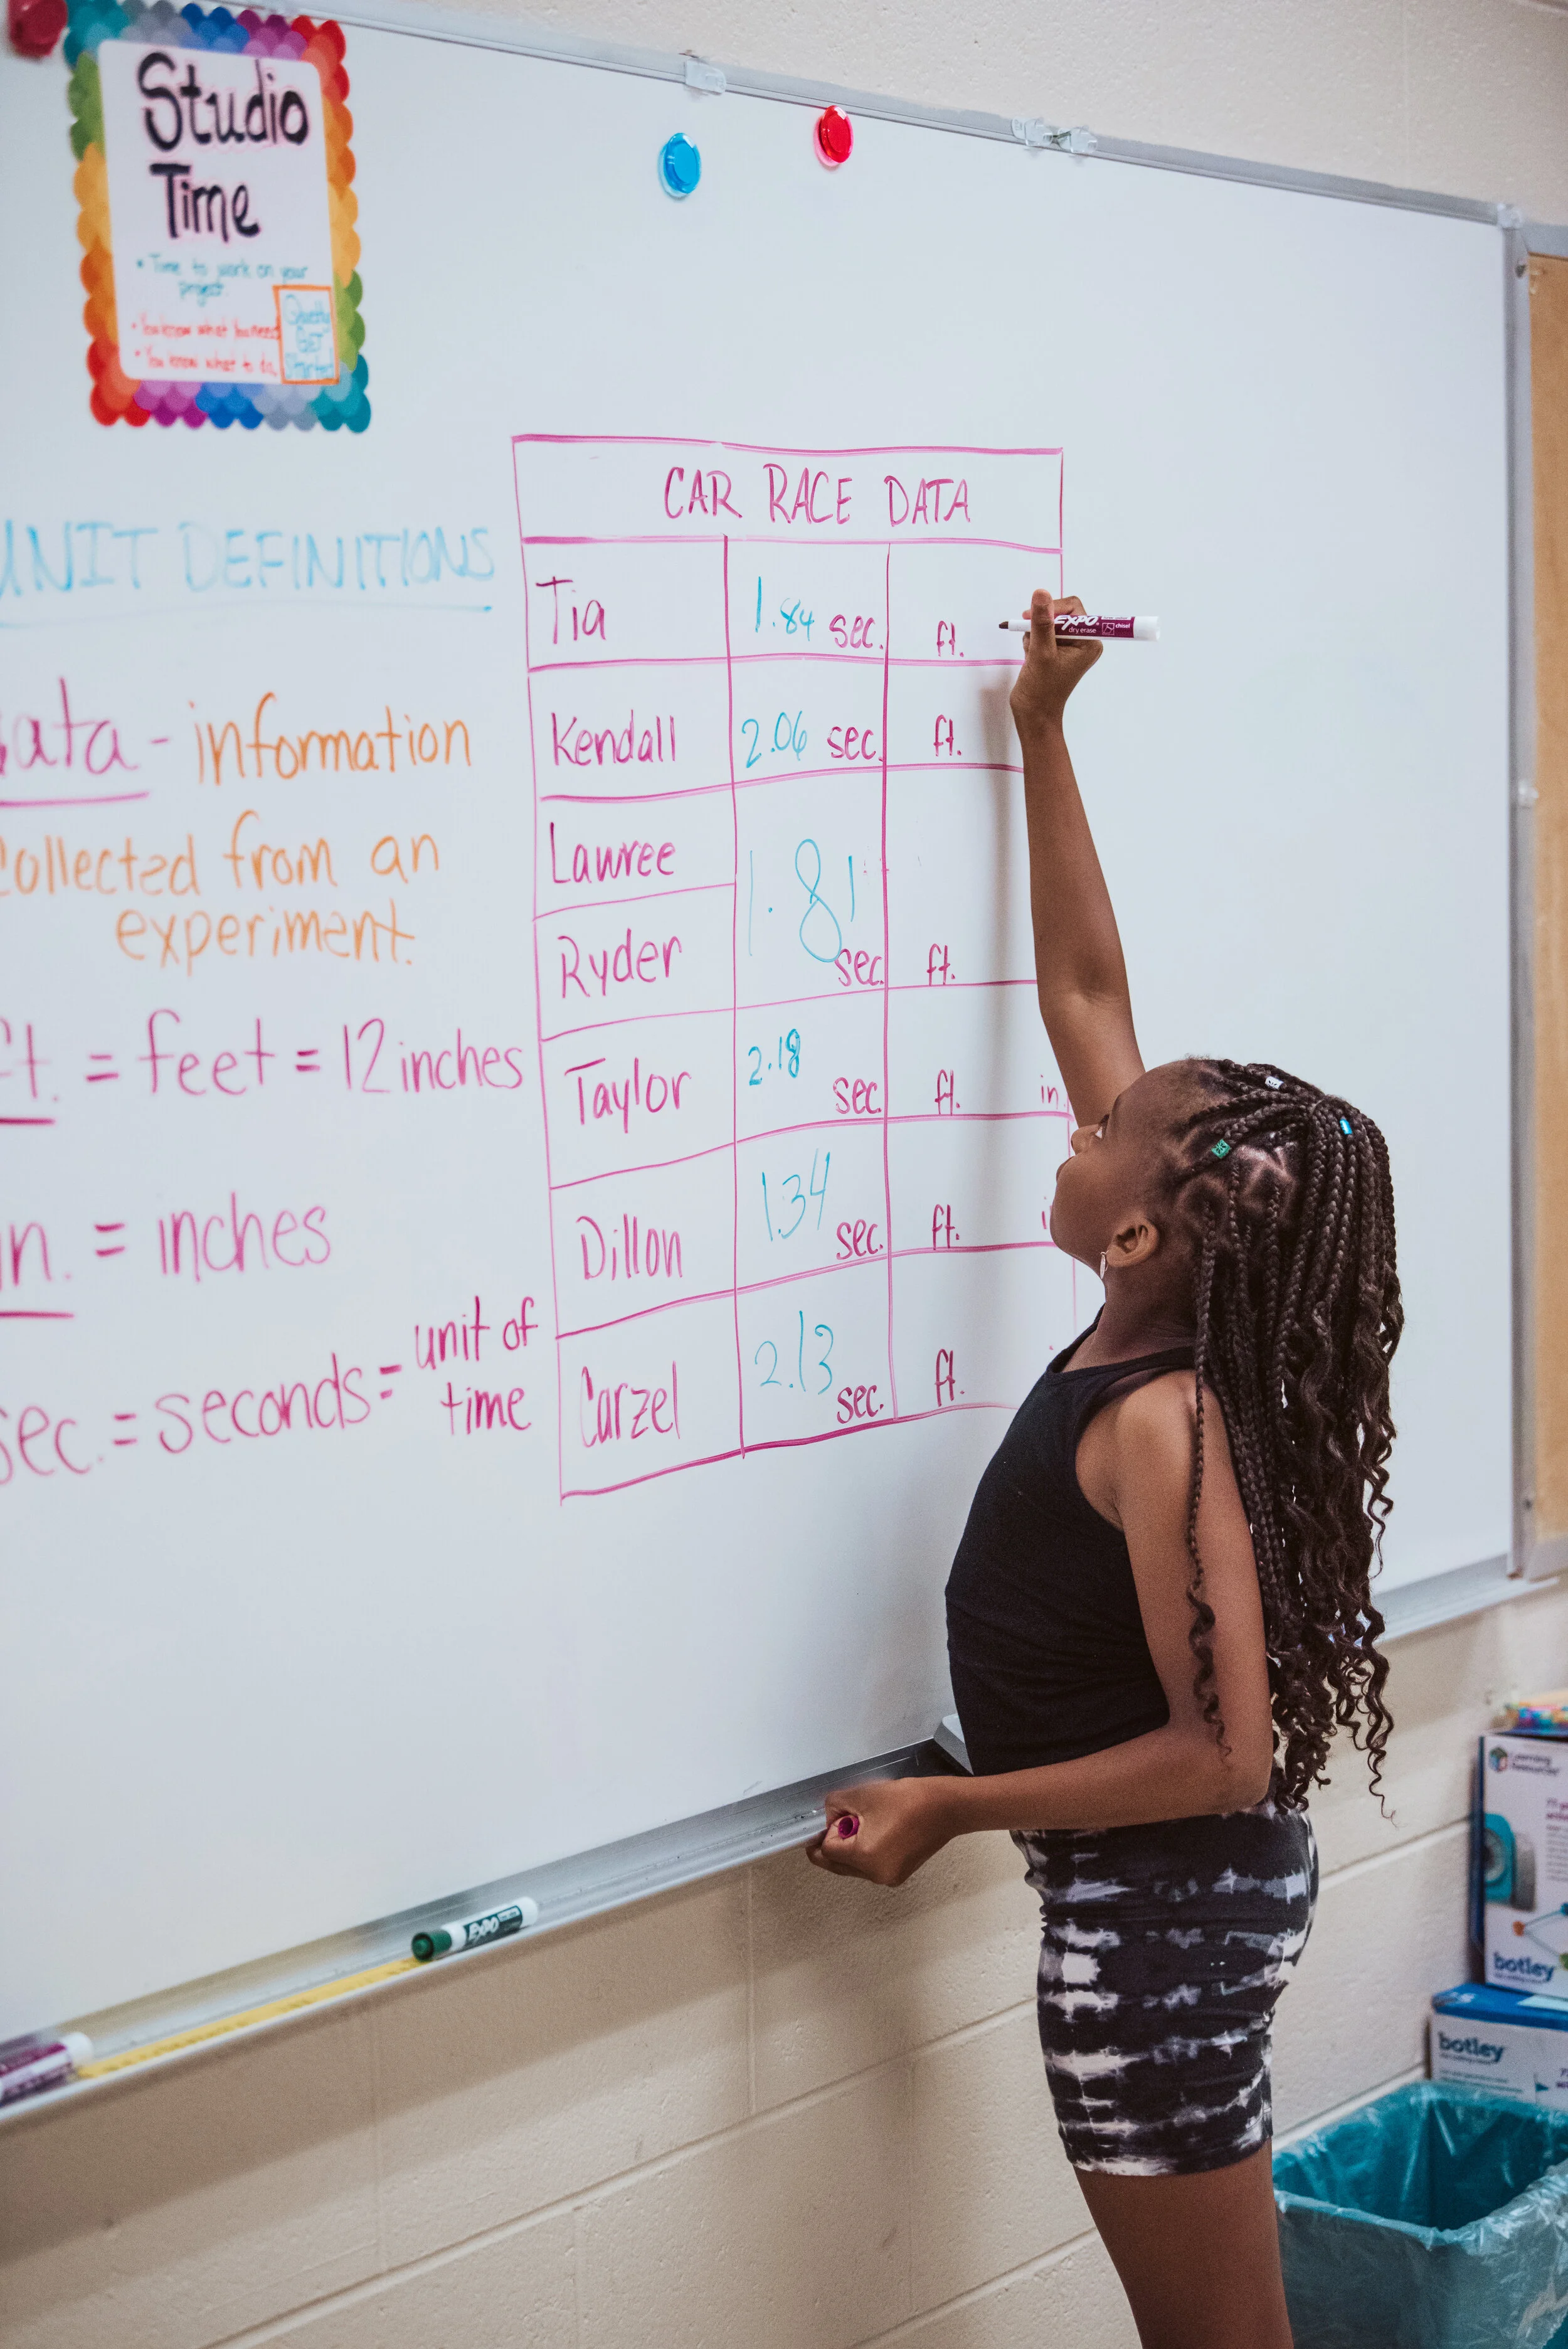 Studio
Time
• Time to work on your
project.
• You know what you need
• You know what to do,
Quietly
GET
Started
UNIT DEFINITIONS
data - information
collected from an
experiment.
ft. = feet = 12 inches
in. = inches
sec. = seconds = unit of
time
CAR RACE DATA
Tia 1.84 sec. ft.
Kendall 2.06 sec. ft.
Lawree
Ryder 1.81 sec. ft.
Taylor 2.18 sec. ft. in.
Dillon 1.34 sec. ft.
Carzel 2.13 sec. ft.
EXPO
dry erase chisel
EXPO
Learning
Resources
botley
botley